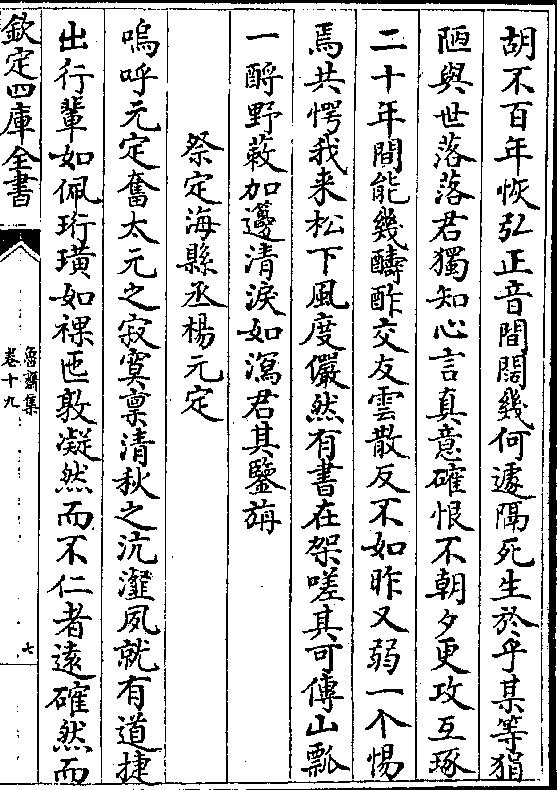 胡不百年恢弘正音間闊幾何遽隔死生於乎某等狷
陋與世落落君獨知心言真意確恨不朝夕更攻互琢
二十年間能幾醻酢交友雲散反不如昨又弱一个惕
焉共愕我来松下風度儼然有書在架嗟其可傳山瓢
一酹野蔌加籩清淚如瀉君其鑒旃
祭定海縣丞楊元定
嗚呼元定奮太元之寂寞稟清秋之沆瀣夙就有道捷
出行輩如佩珩璜如祼匜敦凝然而不仁者遠確然而
欽定四庫全書
魯齋集
卷十九
七